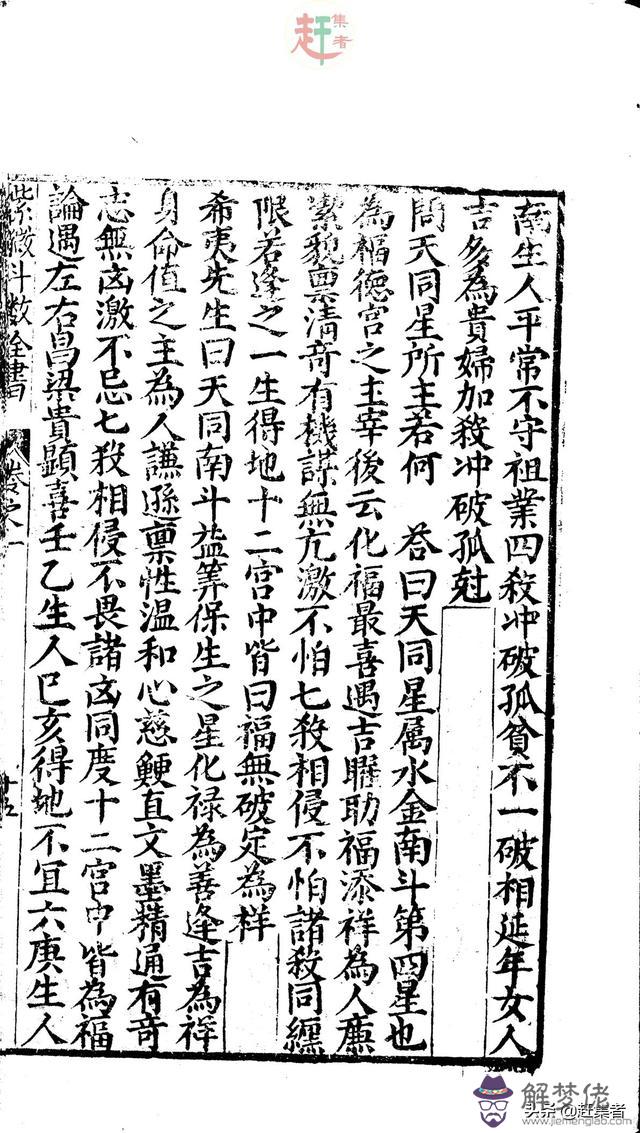 趕集者
南生人平常不守祖業四殺冲破孤貧不一破相延年女人
吉多為貴婦加殺冲破孤尅
問天同星所主若何 荅曰天同星属水金南斗第四星也
為福德宮之主宰後云化福最喜遇吉曜助福添祥為人廉
潔貌禀清竒有機謀無亢激不怕七殺相侵不怕諸殺同纏
限若逢之一生得地十二宮中皆曰福無破定為祥
希夷先生曰天同南斗益筭保生之星化禄為善逢吉為祥
身命值之主為人謙遜禀性溫和心慈鯁直文墨精通有竒
志無凶激不忌七殺相侵不畏諸凶同度十二宮中皆為福
論遇左右昌梁貴顯喜壬乙生人巳亥得地不宜六庚生人
紫微斗数全書 卷之一 十五
解梦佬
www.jiemenglao.com
头条 @赶集者